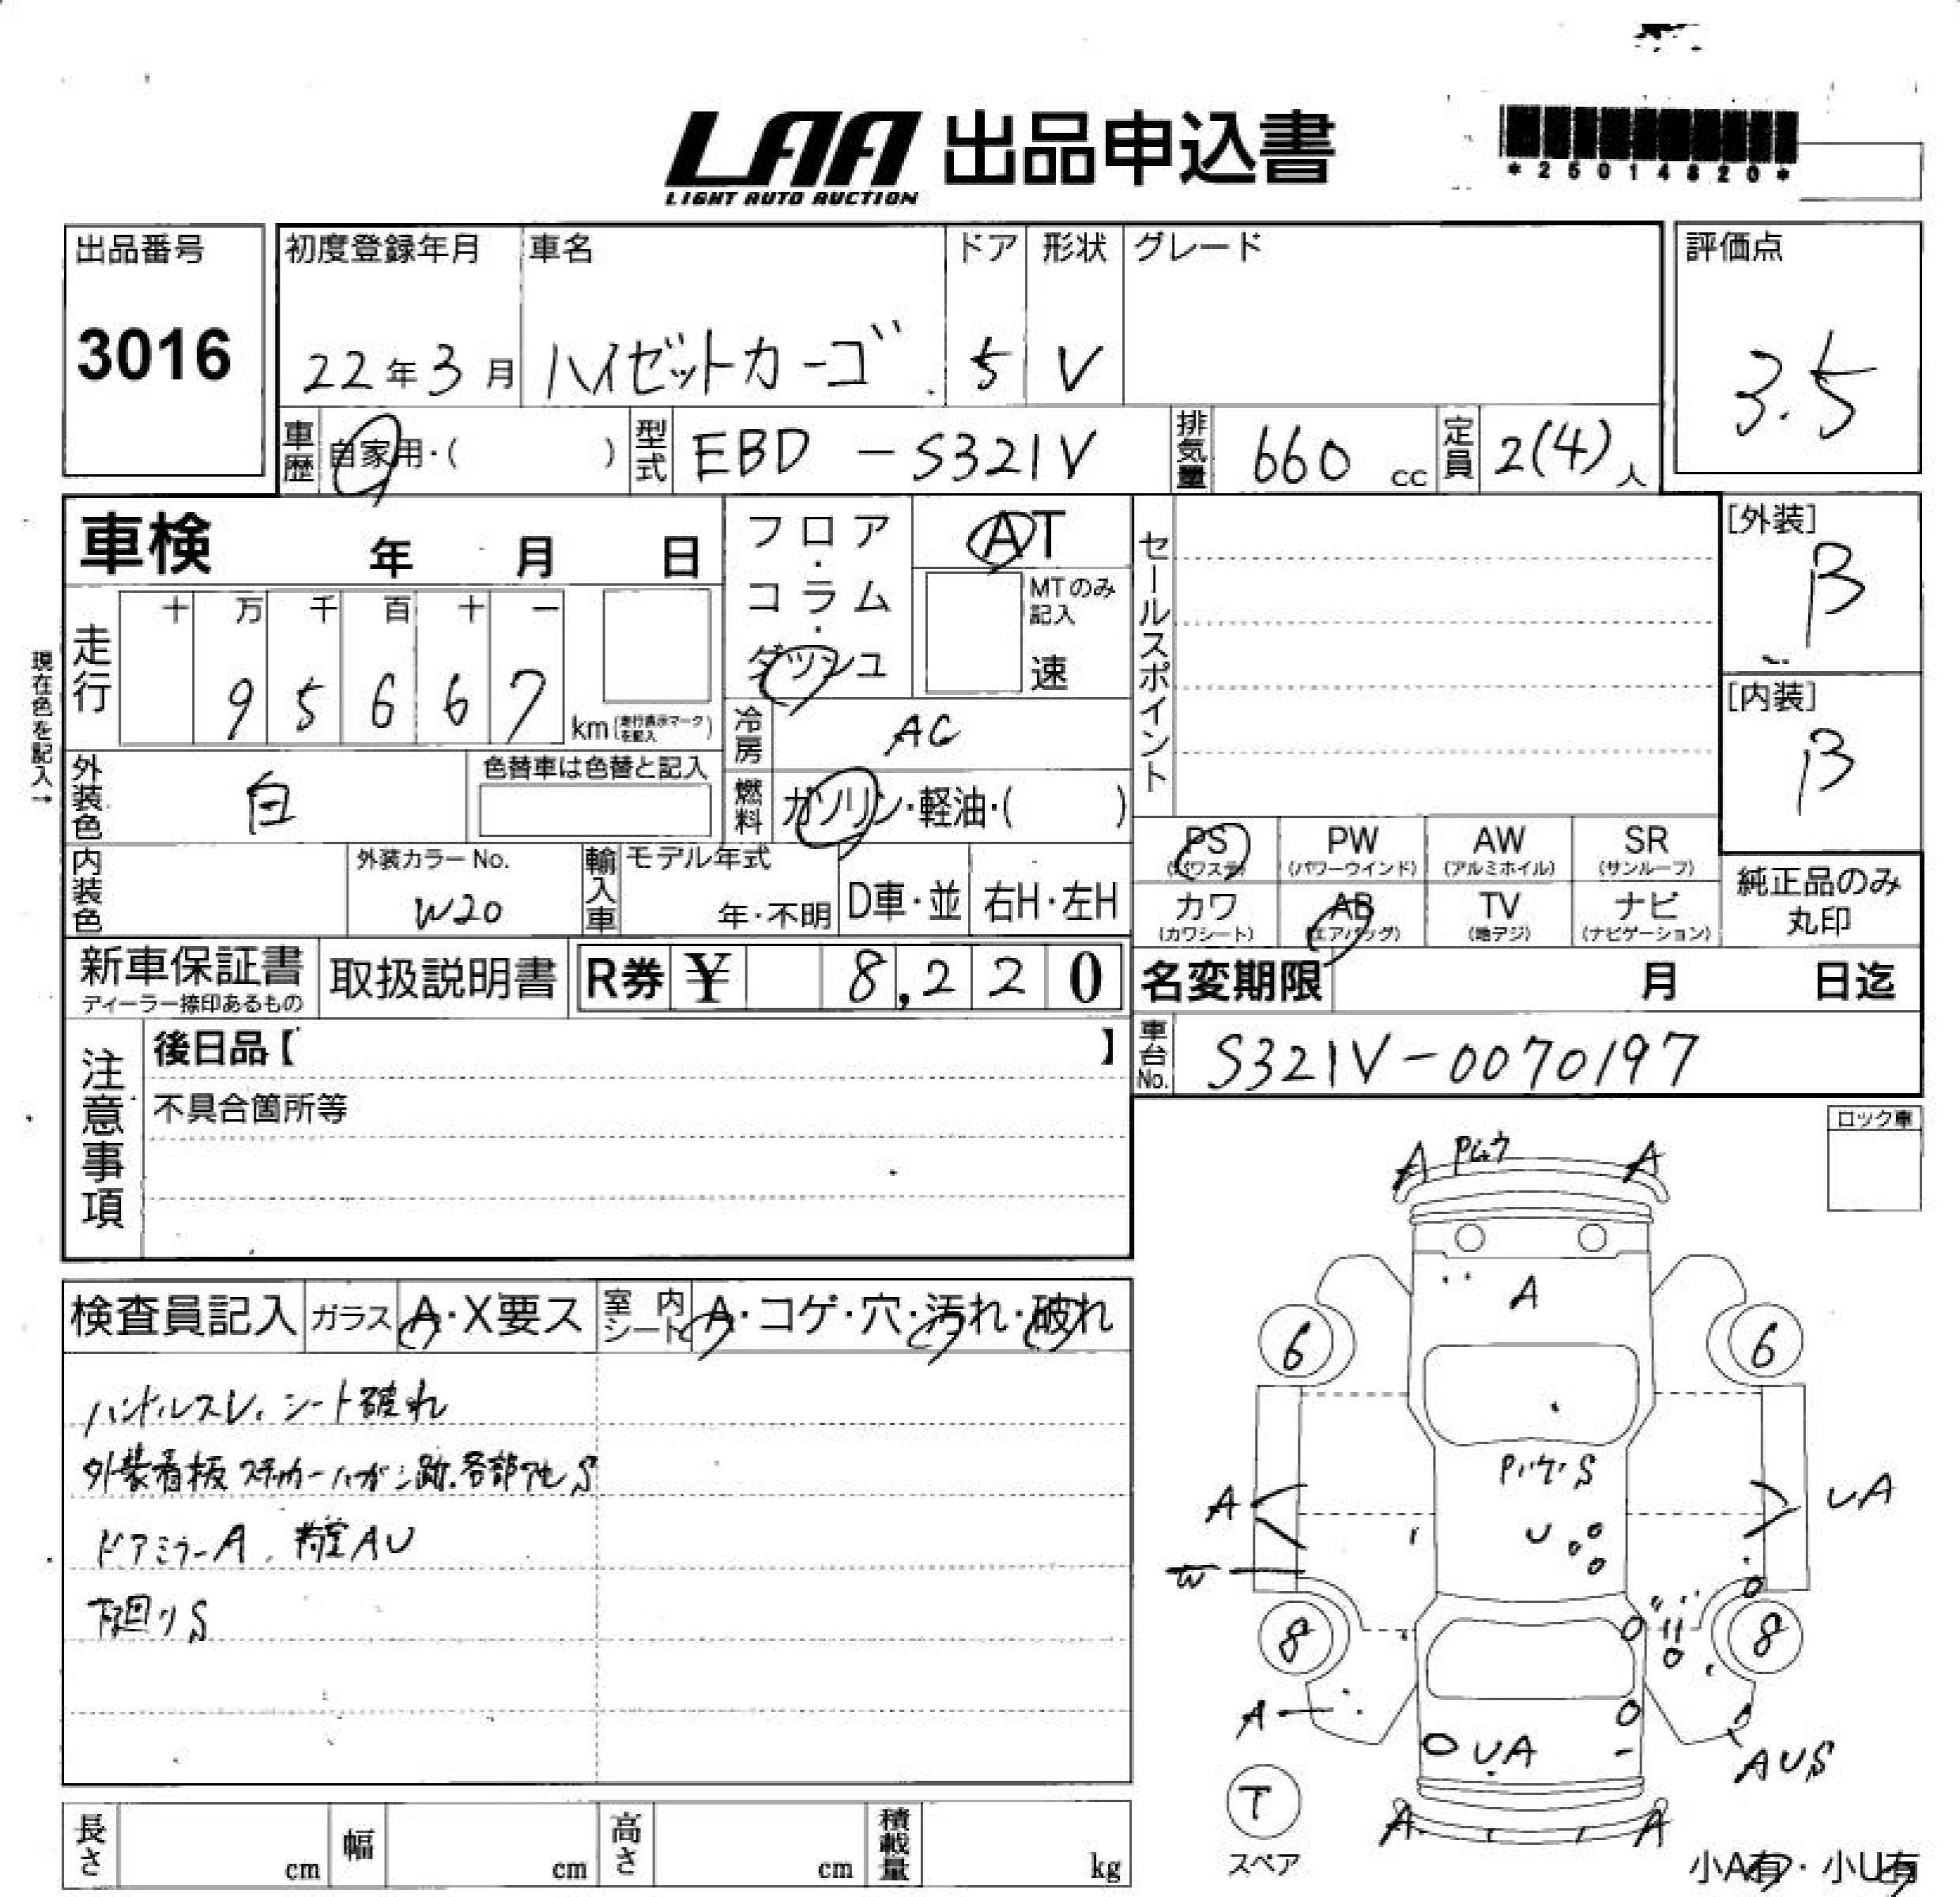 LAA 出品申込書
LIGHT AUTO AUCTION
*25014820*
出品番号
3016
初度登録年月
22年3月
車名
ハイゼットカーゴ
ドア
5
形状
V
グレード
評価点
3.5
車歴
自家用・( )
型式
EBD-S321V
排気量
660 cc
定員
2(4)人
車検 年 月 日
走行
十 万 千 百 十 一
9 5 6 6 7
km(走行表示マークを記入)
現在色を記入→
外装色
白
色替車は色替と記入
内装色
外装カラーNo.
W20
フロア・コラム・ダッシュ
AT
MTのみ記入
速
冷房
AC
燃料
ガソリン・軽油・( )
輸入車
モデル年式
年・不明
D車・並
右H・左H
セールスポイント
[外装]
B
[内装]
B
PS
(パワステ)
PW
(パワーウインド)
AW
(アルミホイル)
SR
(サンルーフ)
カワ
(カワシート)
AB
(エアバッグ)
TV
(地デジ)
ナビ
(ナビゲーション)
純正品のみ
丸印
新車保証書
ディーラー捺印あるもの
取扱説明書
R券 ¥ 8,220
名変期限 月 日迄
車台No.
S321V-0070197
注意事項
後日品【 】
不具合箇所等
ロック車
検査員記入
ガラス
A・X要ス
室内シート
A・コゲ・穴・汚れ・破れ
ハンドルスレ、シート破れ
外装看板ステッカーハガシ跡.各部サビS
ドアミラーA、荷室AU
下回りS
A
A
A
6
6
A
UA
U
W
8
8
A
UA
AUS
T
スペア
A
A
小A有・小U有
長さ cm
幅 cm
高さ cm
積載量 kg